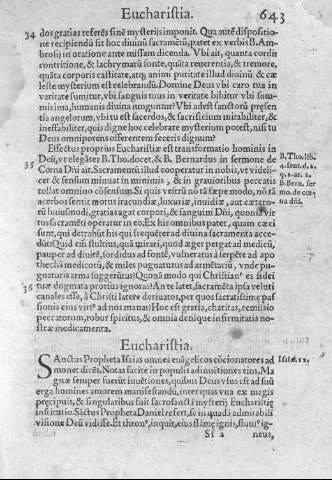 Eucharistia. 643
34 dos gratias referēs finē mysterijs imponit. Qua autē dispositio-
ne recipiendū sit hoc diuinū sacramētū, patet ex verbis B. Am-
brosij in oratione ante missam dicenda. Vbi ait, quanta cordis
contritione, & lachrymarū fonte, quāta reuerentia, & tremore,
quāta corporis castitate, atq; animi puritate illud diuinū & cæ
leste mysterium est celebrandū. Domine Deus vbi caro tua in
veritate sumitur, vbi sanguis tuus in veritate bibitur vbi sum-
mis ima, humanis diuina iunguntur? Vbi adest sanctorū præsen
tia angelorum, vbi tu est sacerdos, & sacrificium mirabiliter, &
ineffabiliter, quis digne hoc celebrare mysterium potest, nisi tu
Deus omnipotens offerentem feceris dignum?
Effectus proprius Eucharistiæ est transformatio hominis in
Deū, vt elegāter B. Tho. docet. & B. Bernardus in sermone de
35 Cœna Dñi ait. Sacramentū illud cooperatur in nobis, vt videli-
cet & sensum minuat in minimis, & in grauioribus peccatis
tollat omnino cōsensum. Si quis vestrū nō tā sæpe modo, nō tā
acerbos sentit motus iracundiæ, luxuriæ, inuidiæ, aut cætero-
rū huiusmodi, gratias agat corpori, & sanguini Dñi, quoniā vir
tus sacramēti operatur in eo. Ex his omnibus patet, quam cæci
sunt, qui detrahūt his qui frequēter ad diuina sacramenta acce-
dūt: Quid em̄ stultius, quā mirari, quod æger pergat ad medicū,
pauper ad diuitē, sordidus ad fontē, vulneratus à serpēte ad apo
thecā medicorū, & miles pugnaturus ad armētariū, vnde pug-
naturis arma suggerūtur? Quonā modo qui Christianꝰ es fidei
36 tuæ dogmata prorsus ignoras? An te latet, sacramēta ipsa veluti
canales esse, à Christi latere deriuatos, per quos sacratissimę pas
sionis eius virtꝰ ad nos manat? Hoc est gratia, charitas, remissio
peccatorum, robur spiritus, & omnia denique infirmitatis no-
stræ medicamenta.
B. Tho. ſib.
q. sent. d. 12.
q. 2. ar. 1.
B. Bern. ser
mo. de cœ-
na dñi.
Eucharistia.
SAnctus Propheta Isaias omnes euāgelicos cōcionatores ad
monet dicēs. Notas facite in populis adinuētiones eius. Ma
gnæ semper fuerūt inuētiones, quibus Deus vsus est ad suū
erga homines amorem manifestandū, inter quas vna ex magis
pręcipuis, & singularibus fuit sacrosancti mysterij Eucharistię
institutio. Sāctus Propheta Daniel refert, se in quadā admirabili
visione Deū vidisse. Et thronꝰ, inquit, eius flāmę ignis, fluuiꝰ ig-
Isaię. 12.
Sſ 2 neus,